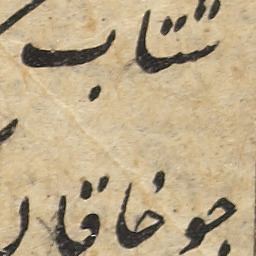 شتاب
جو خاقان